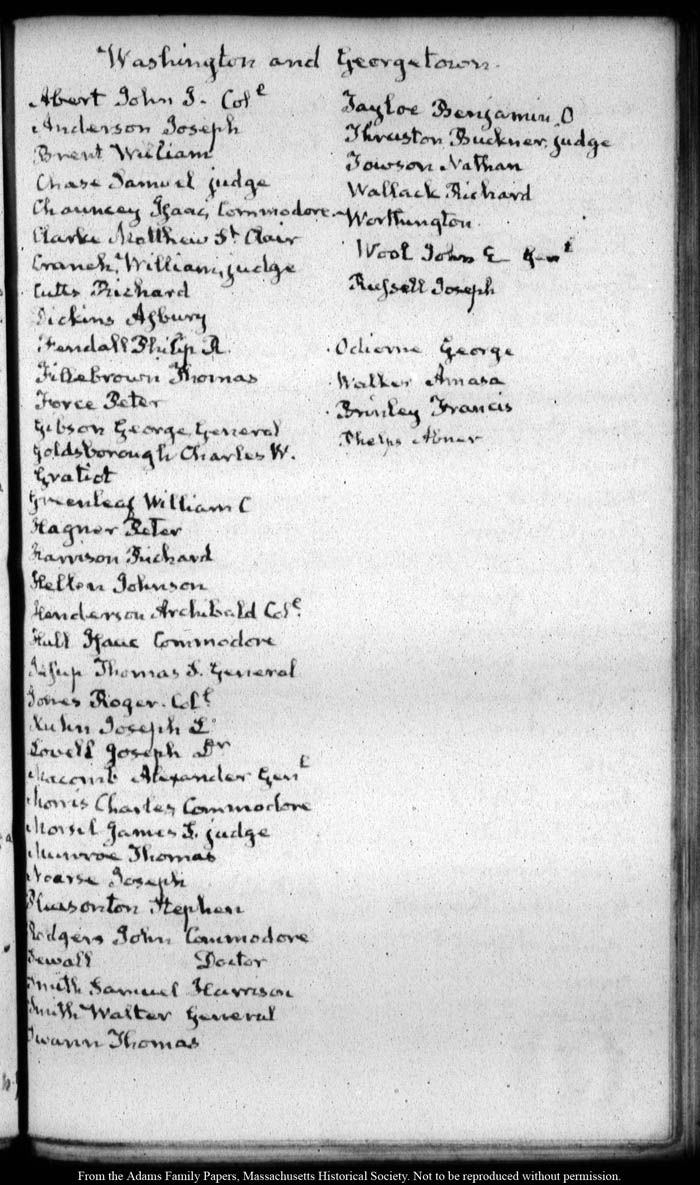 Washington and Georgetown.
Abert John J. Col.l
Anderson Joseph
Brent William
Chase Samuel judge
Chauncey Isaac, Commodore.
Clarke Matthew St Clair
Cranch, William, judge
Cutts Richard
Dickins Asbury
Fendall Philip R.
Fillebrown Thomas
Force Peter
Gibson George, General
Goldsborough Charles W.
Gratiot
Greenleaf William C
Hagner Peter
Harrison Richard
Hellen Johnson
Henderson Archibald Col.l
Hull Isaac Commodore
Jesup Thomas S. General
Jones Roger. Col.l
Kuhn Joseph L.
Lovell Joseph Dr
Macomb Alexander Genl
Morris Charles, Commodore
Morsel James S. judge
Munroe Thomas
Nourse Joseph
Pleasonton Stephen
Rodgers John Commodore
Sewall Doctor
Smith Samuel Harrison
Smith Walter General
Swann Thomas
Tayloe Benjamin, O
Thruston Buckner, judge
Towson Nathan
Wallack Richard
Worthington
Wool John E Genl
Russell Joseph
Odiorne George
Walker Amasa
Brinley Francis
Phelps Abner
From the Adams Family Papers, Massachusetts Historical Society. Not to be reproduced without permission.